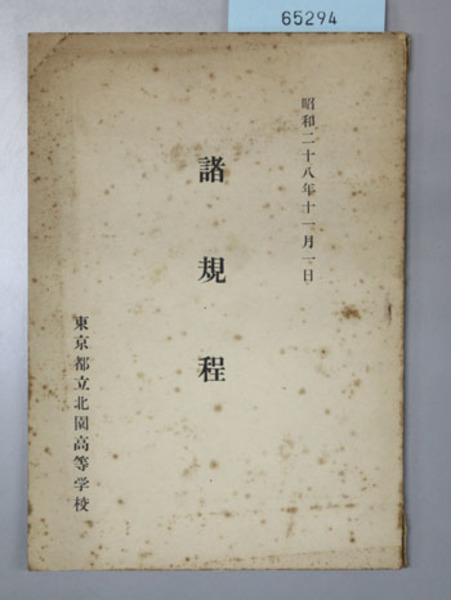 65294
昭和二十八年十一月一日
諸規程
東京都立北園高等学校